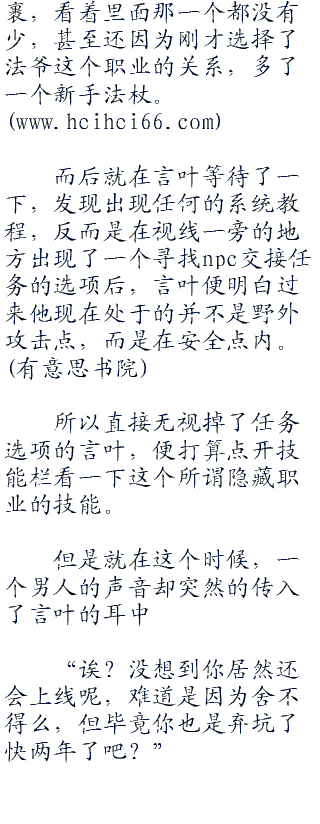 裹，看着里面那一个都没有
少，甚至还因为刚才选择了
法爷这个职业的关系，多了
一个新手法杖。
(www.hcihci66.com)
而后就在言叶等待了一
下，发现出现任何的系统教
程，反而是在视线一旁的地
方出现了一个寻找npc交接任
务的选项后，言叶便明白过
来他现在处于的并不是野外
攻击点，而是在安全点内。
(有意思书院)
所以直接无视掉了任务
选项的言叶，便打算点开技
能栏看一下这个所谓隐藏职
业的技能。
但是就在这个时候，一
个男人的声音却突然的传入
了言叶的耳中
“诶？没想到你居然还
会上线呢，难道是因为舍不
得么，但毕竟你也是弃坑了
快两年了吧？”